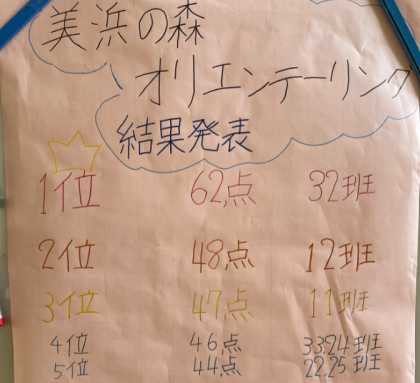 美浜の森
オリエンテーリング
結果発表
1位 62点 32班
2位 48点 12班
3位 47点 11班
4位 46点 33,24班
5位 44点 22,25班